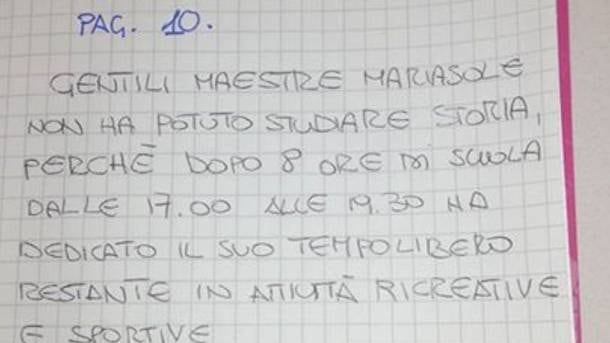 PAG. 10.
GENTILI MAESTRE MARIASOLE
NON HA POTUTO STUDIARE STORIA,
PERCHÉ DOPO 8 ORE DI SCUOLA
DALLE 17.00 ALLE 19.30 HA
DEDICATO IL SUO TEMPO LIBERO
RESTANTE IN ATTIVITÀ RICREATIVE
E SPORTIVE